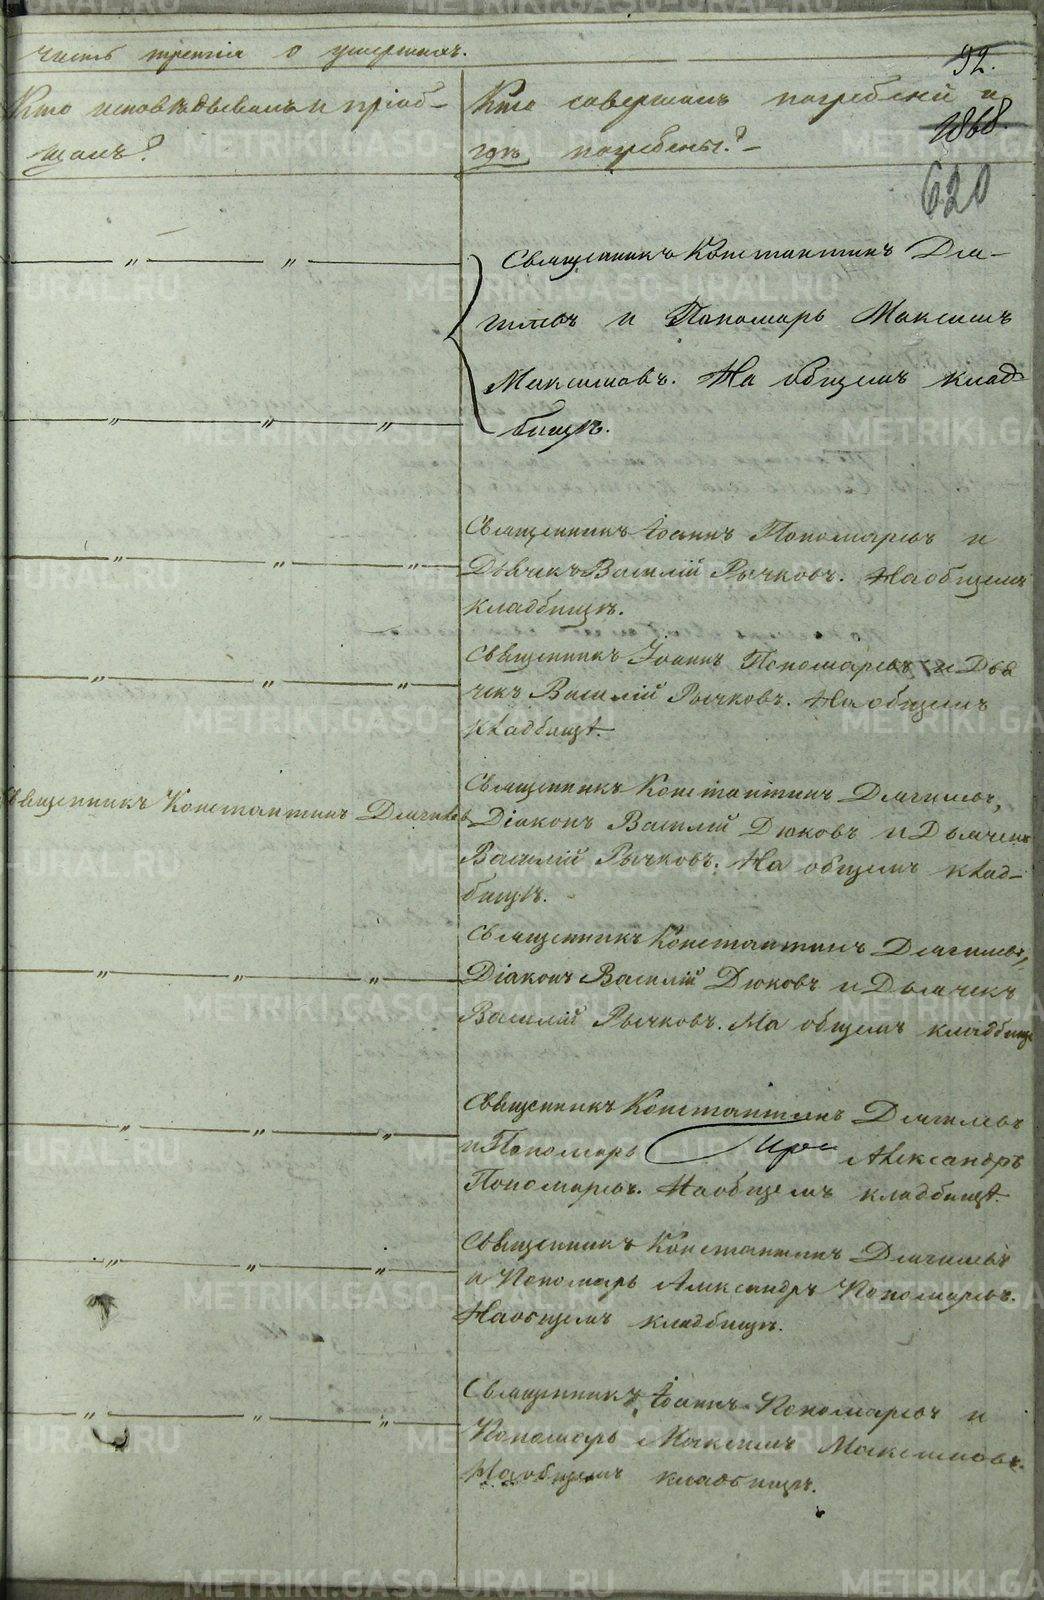 часть третія о умершихъ.
92.
Кто исповѣдывалъ и пріоб-
щалъ?
Кто совершалъ погребеніе и
гдѣ погребены?
1868.
620
Священникъ Константинъ Дяг-
илевъ и Пономарь Максимъ
Максимовъ. На общемъ клад-
бищѣ.
Священникъ Іоаннъ Пономаревъ и
Дьячекъ Василій Рычковъ. На общемъ
кладбищѣ.
Священникъ Іоаннъ Пономаревъ и Дья
чекъ Василій Рычковъ. На общемъ
кладбищѣ.
Священникъ Константинъ Дягилевъ
Священникъ Константинъ Дягилевъ,
Діаконъ Василій Дюковъ и Дьячекъ
Василій Рычковъ. На общемъ клад-
бищѣ.
Священникъ Константинъ Дягилевъ,
Діаконъ Василій Дюковъ и Дьячекъ
Василій Рычковъ. На общемъ кладбищѣ
Священникъ Константинъ Дягилевъ
и Пономарь Александръ
Пономаревъ. На общемъ кладбищѣ.
Священникъ Константинъ Дягилевъ
и Пономарь Александръ Пономаревъ.
На общемъ кладбищѣ.
Священникъ Іоаннъ Пономаревъ и
Пономарь Максимъ Максимовъ.
На общемъ кладбищѣ.
METRIKI.GASO-URAL.RU